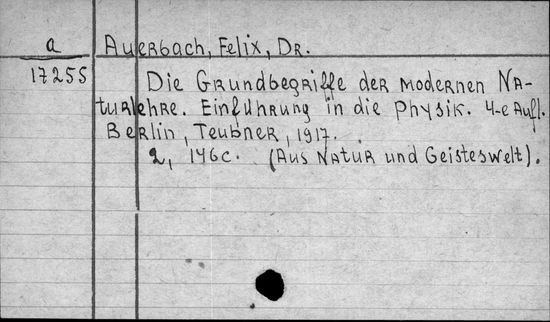 a Auerbach, Felix, Dr.
17255 Die Grundbegriffe der modernen Na-
turlehre. Einführung in die Physik. 4-e Aufl.
Berlin, Teubner, 1917.
2, 146c. (Aus Natur und Geisteswelt).